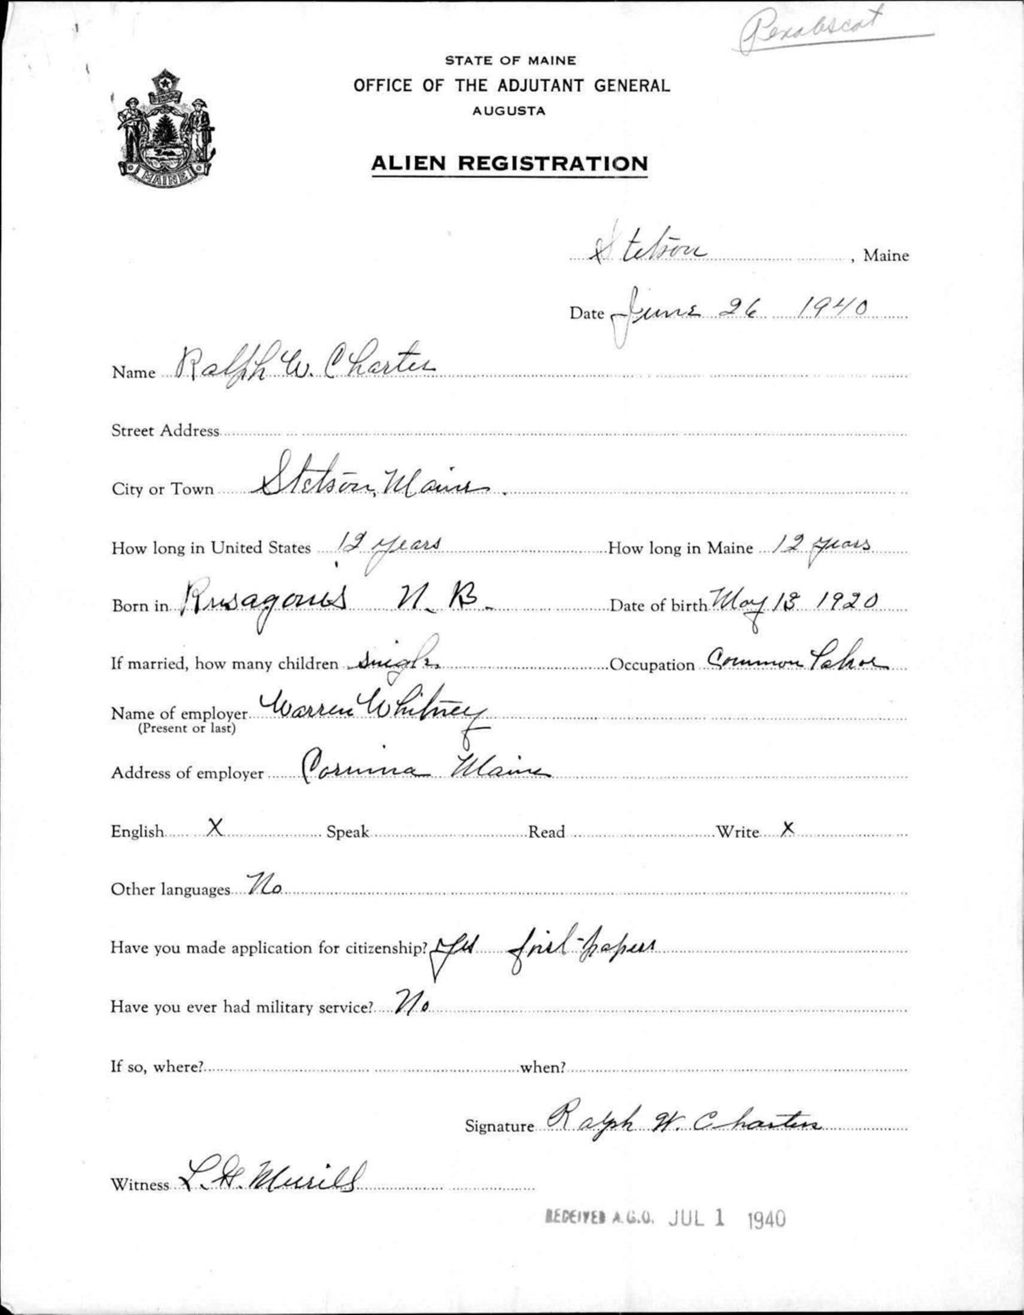 Penobscot
STATE OF MAINE
OFFICE OF THE ADJUTANT GENERAL
AUGUSTA
MAINE
ALIEN REGISTRATION
Stetson, Maine
Date June 26 1940
Name Ralph W. Charters
Street Address
City or Town Stetson, Maine.
How long in United States 12 years How long in Maine 12 years
Born in Rusagonis N. B. Date of birth May 13 1920
If married, how many children single Occupation Common Labor
Name of employer Warren Whitney
(Present or last)
Address of employer Corinna Maine
English X Speak Read Write X
Other languages No
Have you made application for citizenship? Yes first-papers
Have you ever had military service? No
If so, where? when?
Signature Ralph W. Charters
Witness L. H.
RECEIVED A.G.O. JUL 1 1940